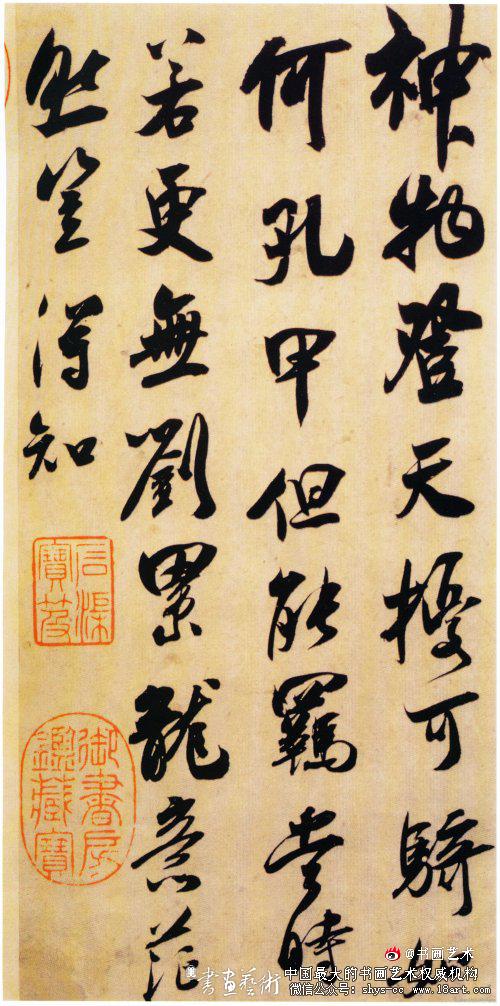 神物登天擾可騎如
何孔甲但能羈當時
若更無劉累龍意茫
然豈得知
石渠寶笈
御書房鑑藏寶
書畫藝術
@书画艺术
中国最大的书画艺术权威机构
微信公众号: shys-cc www.18art.com